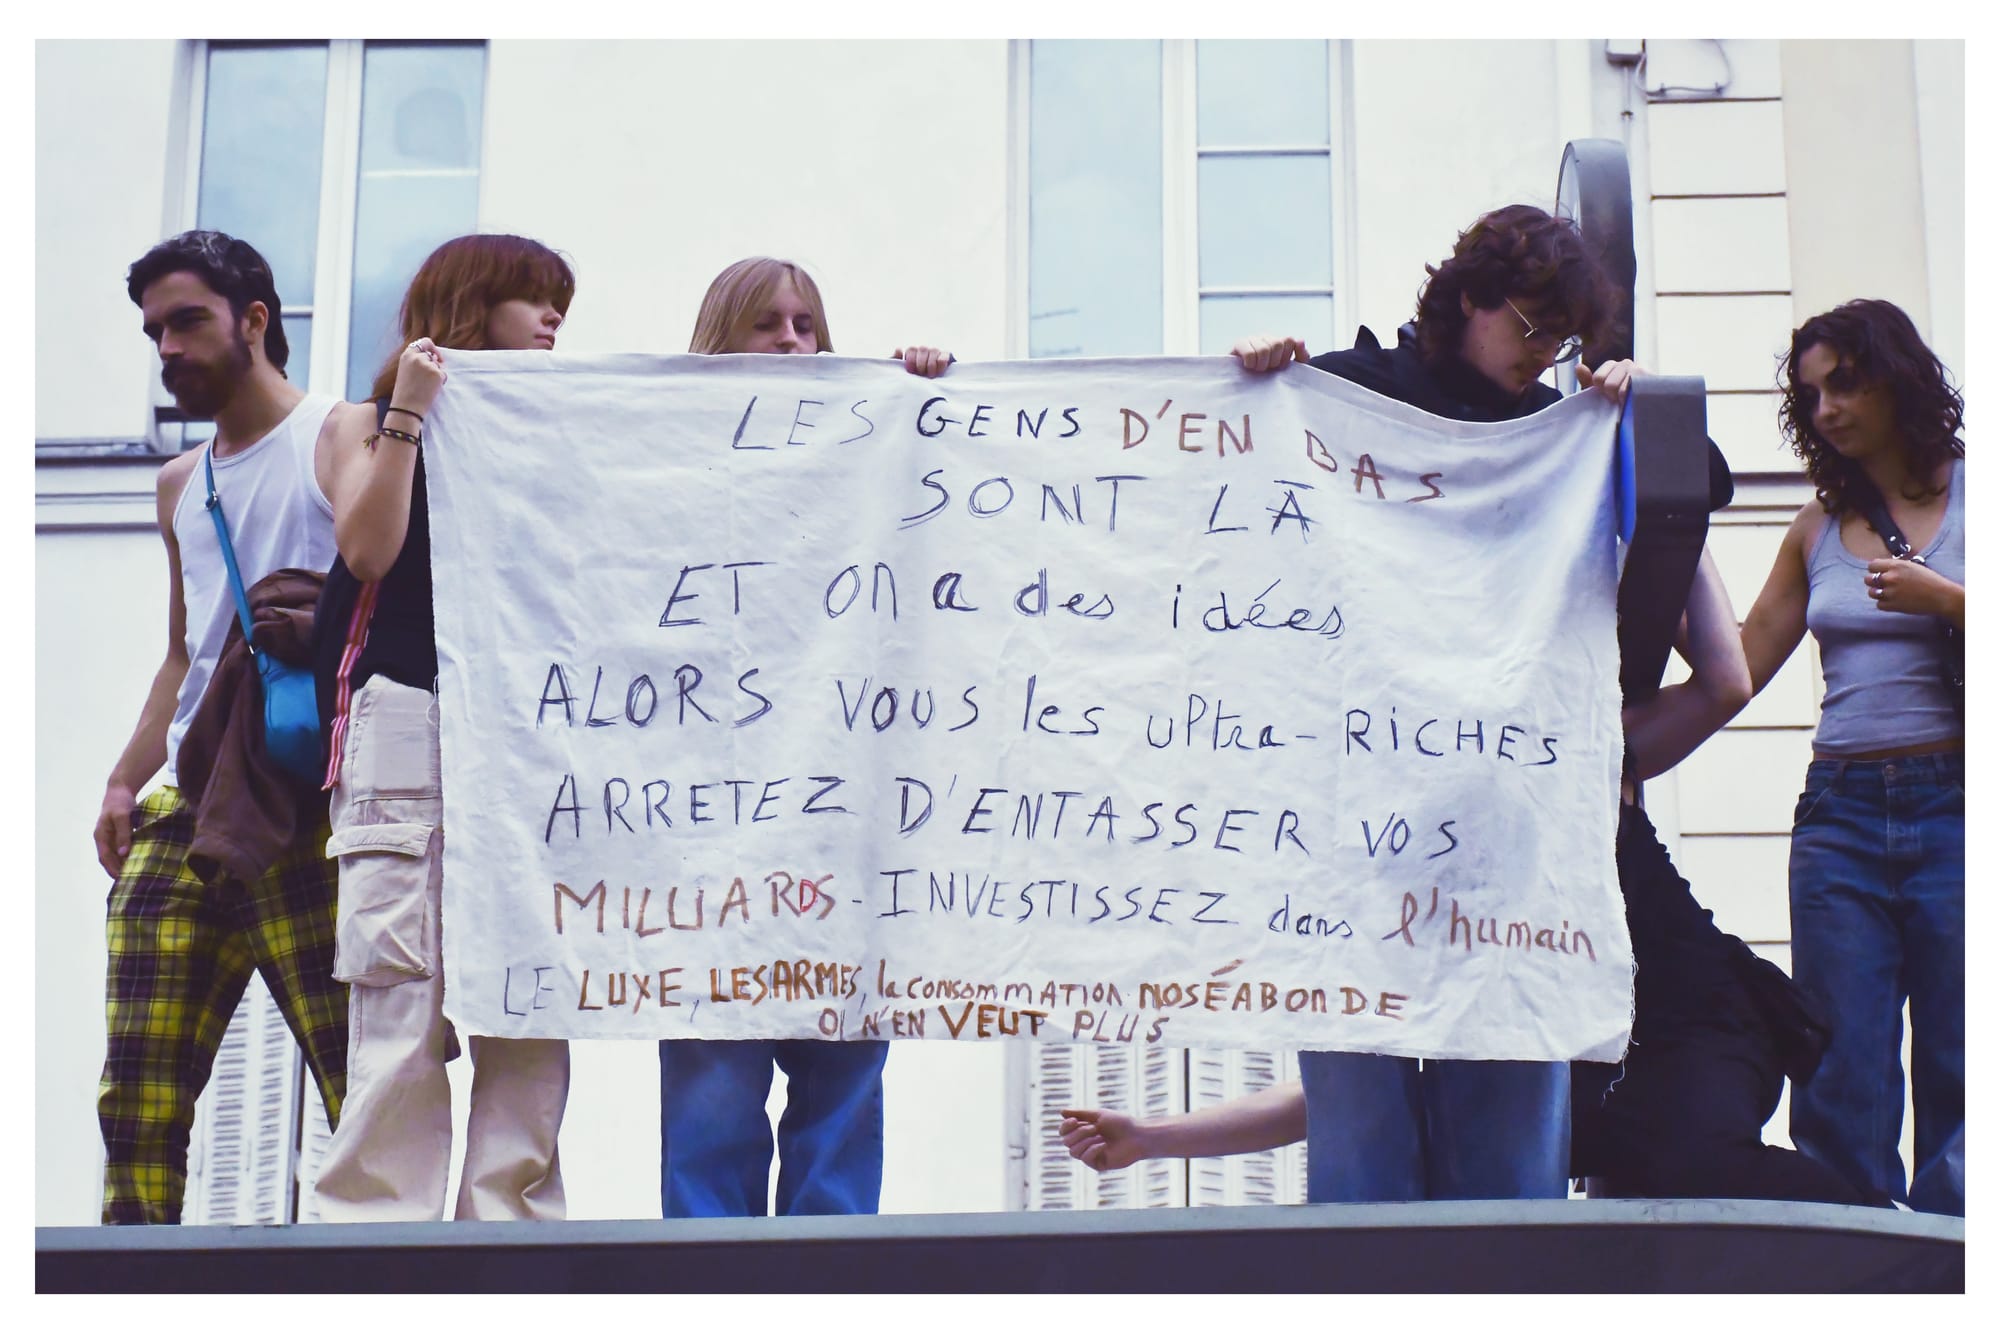 LES GENS D'EN BAS
SONT LÀ
ET on a des idées
ALORS VOUS les ultra-RiCHES
ARRETEZ D'ENTASSER VOS
MILLIARDS-INVESTISSEZ dans l'humain
LE LUXE, LES ARMES, la consommATion NOSÉABONDE
ON N'EN VEUT PLUS